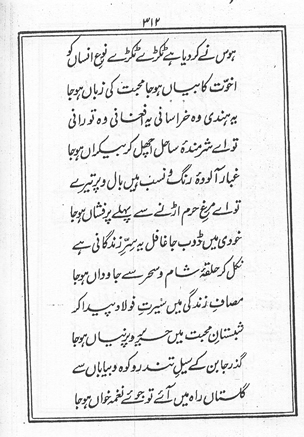 ۳۱۲
ہوس نے کر دیا ہے ٹکڑے ٹکڑے نوعِ انساں کو
اخوّت کا بیاں ہو جا محبت کی زباں ہو جا
یہ ہندی وہ خراسانی یہ افغانی وہ تورانی
تو اے شرمندۂ ساحل اچھل کر بیکراں ہو جا
غبار آلودۂ رنگ و نسب ہیں بال و پر تیرے
تو اے مرغِ حرم اڑنے سے پہلے پرفشاں ہو جا
خودی میں ڈوب جا غافل یہ سرِّ زندگانی ہے
نکل کر حلقۂ شام و سحر سے جاوداں ہو جا
مصافِ زندگی میں سیرتِ فولاد پیدا کر
شبستانِ محبت میں حریر و پرنیاں ہو جا
گذر جا بن کے سیلِ تند رو کوہ و بیاباں سے
گلستاں راہ میں آئے تو جوئے نغمہ خواں ہو جا